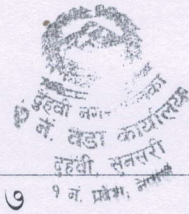 दुहवी नगरपालिका
नं. वडा कार्यालय
दुहवी, सुनसरी
१ नं. प्रदेश, नेपाल
७